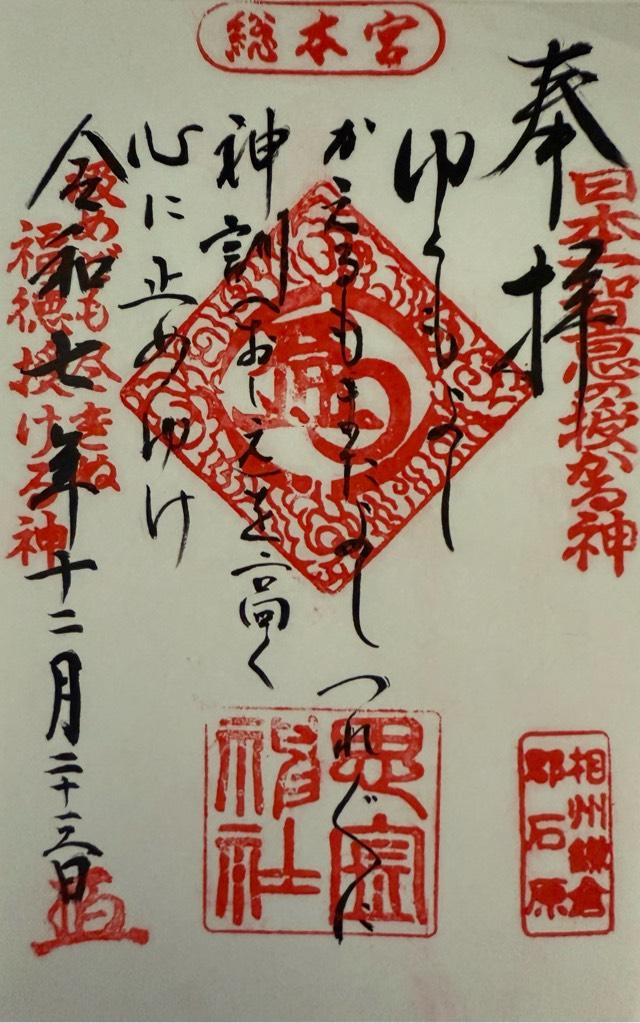 総本宮
奉拝
日本一智恵の授かる神
ゆくもよし
かえるもまたよし つれ〴〵に
神訓へおしえを高く
心に止めゆけ
令和七年十二月
汲めども尽きぬ
福徳授ける神
神社
相州鎌倉
郡石原